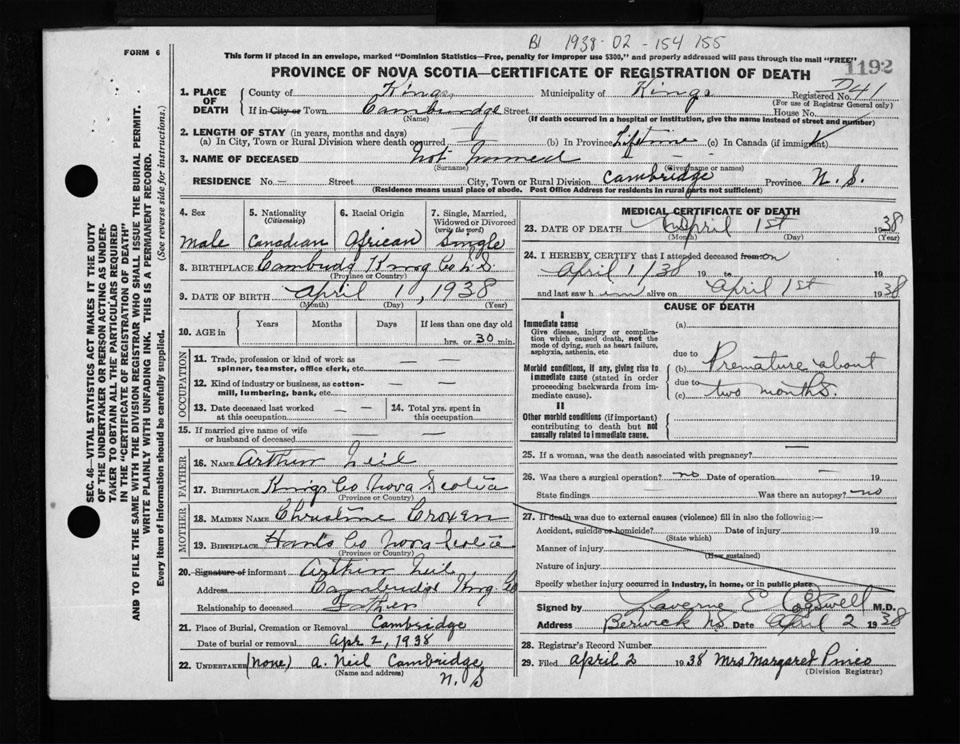 FORM 6
B1 1938-02-154 155
This form if placed in an envelope, marked "Dominion Statistics—Free, penalty for improper use $300," and properly addressed will pass through the mail "FREE"
1192
PROVINCE OF NOVA SCOTIA—CERTIFICATE OF REGISTRATION OF DEATH
1. PLACE OF DEATH
County of Kings Municipality of Kings Registered No. D41
(For use of Registrar General only)
If in City or Town Cambridge Street House No.
(Name) (If death occurred in a hospital or institution, give the name instead of street and number)
2. LENGTH OF STAY (in years, months and days)
(a) In City, Town or Rural Division where death occurred (b) In Province Lifetime (c) In Canada (if immigrant)
3. NAME OF DECEASED Not Named
(Surname) (Given name or names)
RESIDENCE No. — Street City, Town or Rural Division Cambridge Province N. S.
(Residence means usual place of abode. Post Office Address for residents in rural parts not sufficient)
4. Sex
Male
5. Nationality
(Citizenship)
Canadian
6. Racial Origin
African
7. Single, Married, Widowed or Divorced
(write the word)
Single
8. BIRTHPLACE Cambridg Kings Co N.S.
(Province or Country)
9. DATE OF BIRTH April 1, 1938
(Month) (Day) (Year)
10. AGE in Years Months Days If less than one day old
hrs. or 30 min.
OCCUPATION
11. Trade, profession or kind of work as spinner, teamster, office clerk, etc. — —
12. Kind of industry or business, as cotton-mill, lumbering, bank, etc. — —
13. Date deceased last worked at this occupation — —
14. Total yrs. spent in this occupation
15. If married give name of wife or husband of deceased — —
FATHER
16. NAME Arthur Neil
17. BIRTHPLACE Kings Co Nova Scotia
(Province or Country)
MOTHER
18. MAIDEN NAME Christine Croxen
19. BIRTHPLACE Hants Co Nova Scotia
(Province or Country)
20. Signature of informant Arthur Neil
Address Cambridge Kings Co
Relationship to deceased Father
21. Place of Burial, Cremation or Removal Cambridge
Date of burial or removal Apr 2, 1938
22. UNDERTAKER (none) A. Neil Cambridge
(Name and address) N. S
MEDICAL CERTIFICATE OF DEATH
23. DATE OF DEATH April 1st 1938
(Month) (Day) (Year)
24. I HEREBY CERTIFY that I attended deceased from on
April 1/38 19 to 19
and last saw him alive on April 1st 1938
CAUSE OF DEATH
I
Immediate cause
Give disease, injury or complication which caused death, not the mode of dying, such as heart failure, asphyxia, asthenia, etc.
(a)
due to
Morbid conditions, if any, giving rise to immediate cause (stated in order proceeding backwards from immediate cause).
(b) Premature about
due to
(c) two months.
II
Other morbid conditions (if important) contributing to death but not causally related to immediate cause.
25. If a woman, was the death associated with pregnancy?
26. Was there a surgical operation? no Date of operation — 19
State findings Was there an autopsy? no
27. If death was due to external causes (violence) fill in also the following:—
Accident, suicide or homicide? Date of injury 19
(State which)
Manner of injury
(How sustained)
Nature of injury
Specify whether injury occurred in industry, in home, or in public place
Signed by Laverne E Cogswell M.D.
Address Berwick NS Date April 2 1938
28. Registrar's Record Number
29. Filed April 2 1938 Mrs Margaret
(Division Registrar)
SEC. 46—VITAL STATISTICS ACT MAKES IT THE DUTY
OF THE UNDERTAKER OR PERSON ACTING AS UNDER-
TAKER TO OBTAIN ALL THE PARTICULARS REQUIRED
IN THE "CERTIFICATE OF REGISTRATION OF DEATH"
AND TO FILE THE SAME WITH THE DIVISION REGISTRAR WHO SHALL ISSUE THE BURIAL PERMIT.
WRITE PLAINLY WITH UNFADING INK. THIS IS A PERMANENT RECORD.
Every item of information should be carefully supplied. (See reverse side for instructions.)